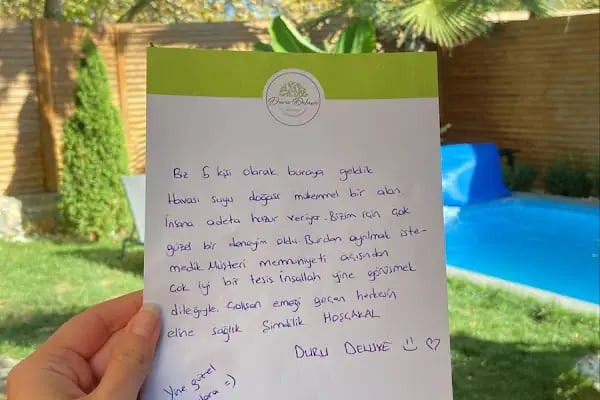 Duru Deluxe
Biz 5 kişi olarak buraya geldik
Havası suyu doğası mükemmel bir alan.
İnsana adeta huzur veriyor. Bizim için çok
güzel bir deneyim oldu. Burdan ayrılmak iste-
medik. Müşteri memnuniyeti açısından
çok iyi bir tesis İnşallah yine görüşmek
dileğiyle. Çalışan emeği geçen herkesin
eline sağlık Şimdilik HOŞÇAKAL
DURU DELUXE :) ♡
Yine güzel
=)